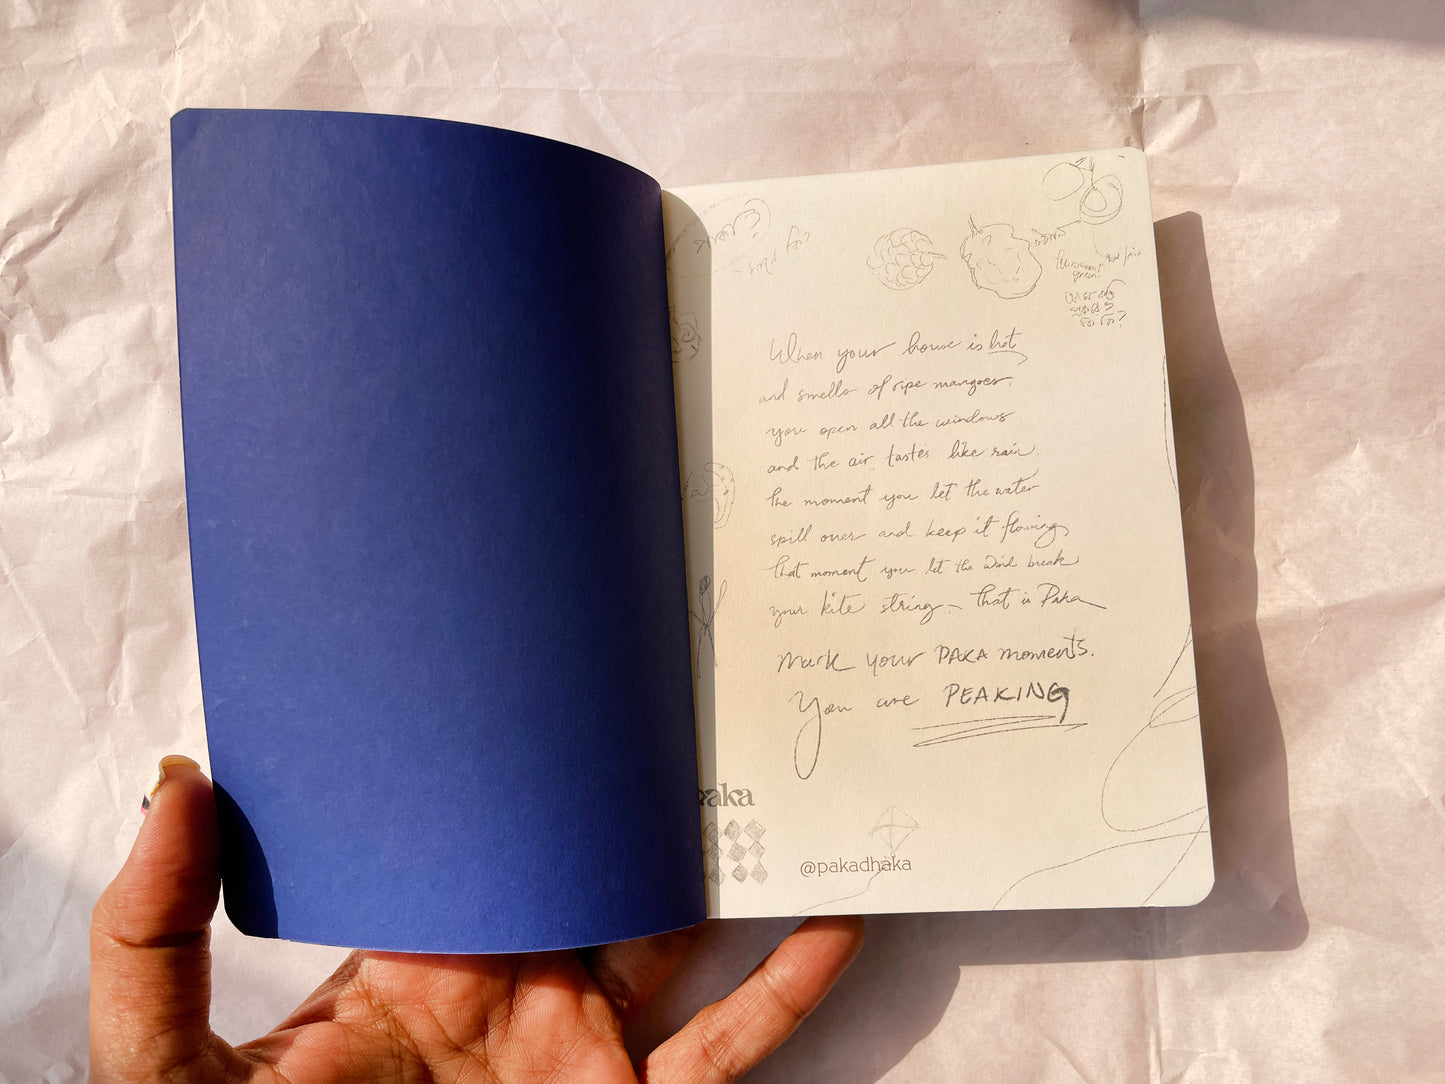 When your house is hot
and smells of ripe mangoes,
you open all the windows
and the air tastes like rain.
The moment you let the water
spill over and keep it flowing,
that moment you let the wind break
your kite string – that is Paka
Mark your PAKA moments.
You are PEAKING
paka
@pakadhaka